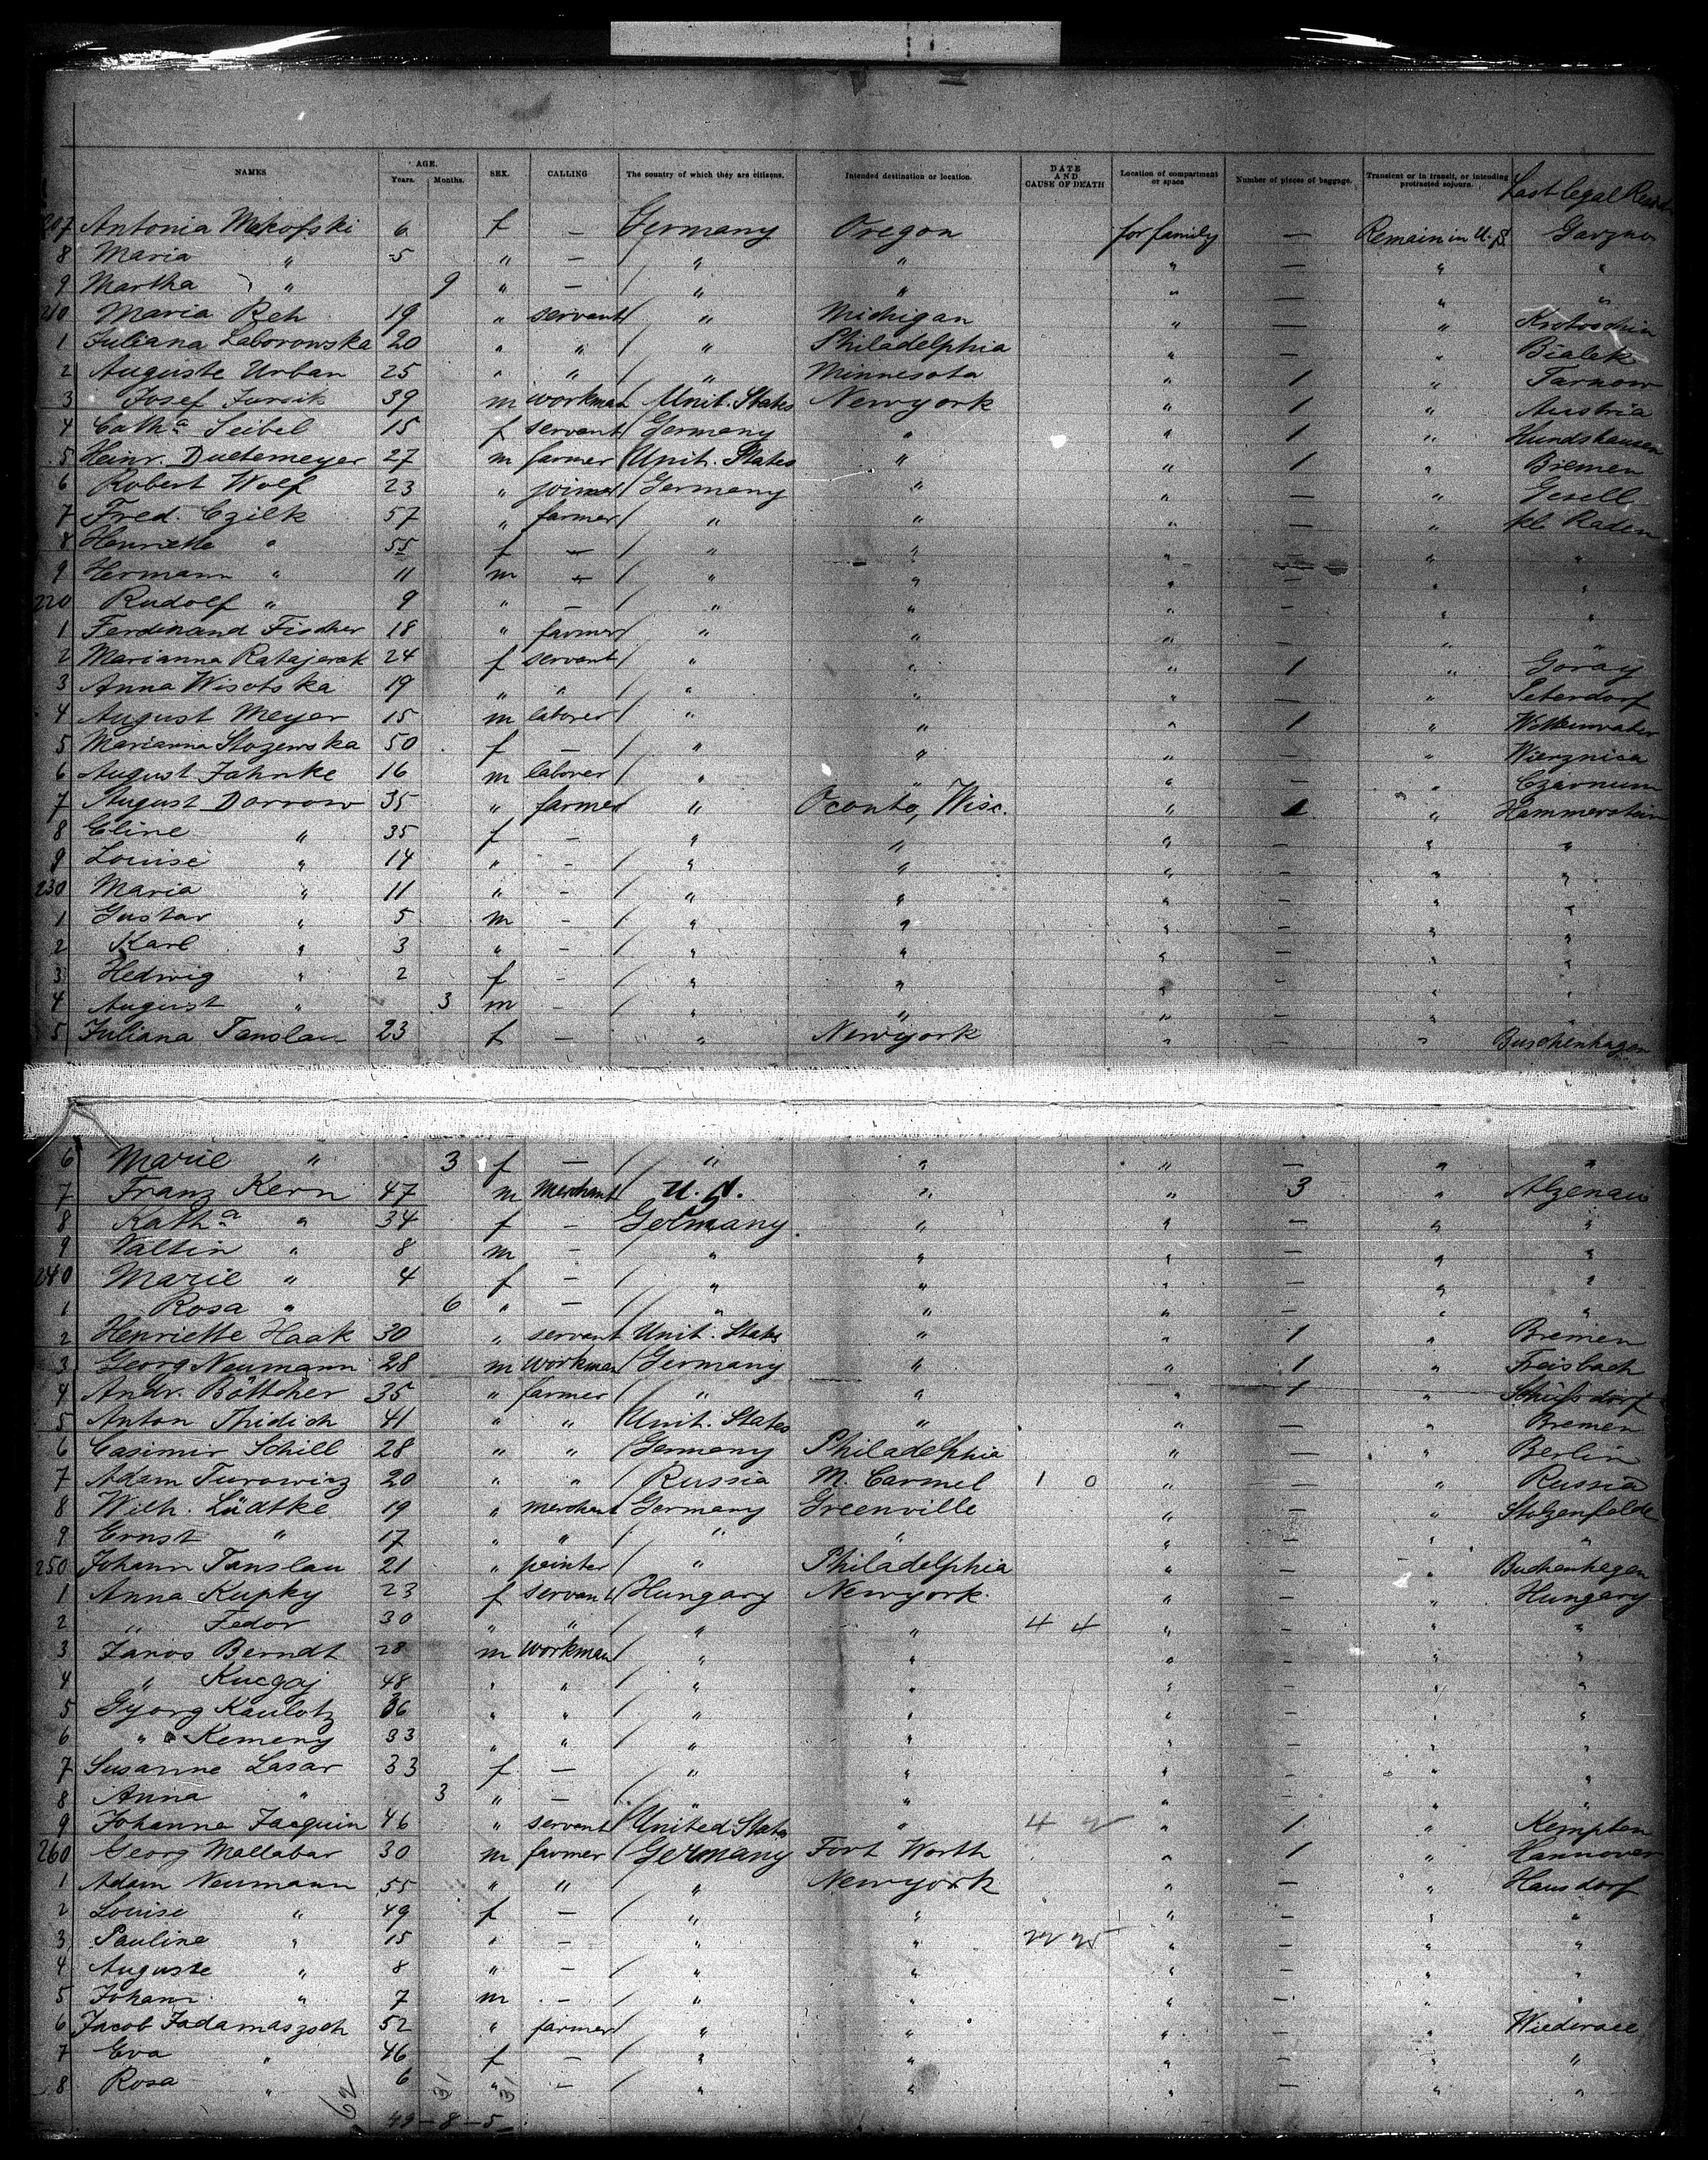 NAMES AGE. Years. Months. SEX. CALLING The country of which they are citizens. Intended destination or location. DATE AND CAUSE OF DEATH Location of compartment or space Number of pieces of baggage. Transient or in transit, or intending protracted sojourn. Last legal
207 Antonia Mekofski 6 f — Germany Oregon for family — Remain in U.S.
8 Maria " 5 " — " " " — " "
9 Martha " 9 " — " " " — " "
210 Maria Reh 19 " servant " Michigan " — " Krotoschin
1 Juliana Laborowska 20 " " " Philadelphia " — " Bialek
2 Auguste Urban 25 " " " Minnesota " 1 " Tarnow
3 Josef Jursik 39 m workman Unit. States Newyork " 1 " Austria
4 Cath.a Seibel 15 f servant Germany " " 1 " Hundshausen
5 Heinr. Duetemeyer 27 m farmer Unit. States " " 1 " Bremen
6 Robert Wolf 23 " joiner Germany " " — " Gesell
7 Fred. Czilk 57 " farmer " " " — " kl. Raden
8 Henriette " 55 f — " " " — " "
9 Hermann " 11 m — " " " — " "
220 Rudolf " 9 " — " " " — " "
1 Ferdinand Fischer 18 " farmer " " " — " "
2 Marianna Ratajerak 24 f servant " " " 1 " Goray
3 Anna Wisotska 19 " " " " " — " Peterdorf
4 August Meyer 15 m laborer " " " 1 "
5 Marianna Stozewska 50 f — " " " — " Wierznica
6 August Jahnke 16 m laborer " " " — " Czarnum
7 August Darrow 35 " farmer " Oconto, Wisc. " 1 " Hammerstein
8 Eline " 35 f — " " " — " "
9 Louise " 14 " — " " " — " "
230 Maria " 11 " — " " " — " "
1 Gustav " 5 m — " " " — " "
2 Karl " 3 " — " " " — " "
3 Hedwig " 2 f — " " " — " "
4 August " 3 m — " " " — " "
5 Juliana Tanslau 23 f — " Newyork " — " Buschenhagen
6 Marie " 3 f — " " " — " "
7 Franz Kern 47 m merchant U.S. " " 3 " Alzenau
8 Kath.a " 34 f — Germany " " — " "
9 Valtin " 8 m — " " " — " "
240 Marie " 4 f — " " " — " "
1 Rosa " 6 " — " " " — " "
2 Henriette Haak 30 " servant Unit. States " " 1 " Bremen
3 Georg Neumann 28 m workman Germany " " 1 " Freisbach
4 Andr. Böttcher 35 " farmer " " " 1 "
5 Anton Thidich 41 " " Unit. States " " — " Bremen
6 Casimir Schill 28 " " Germany Philadelphia " — " Berlin
7 Adam Turowicz 20 " " Russia M. Carmel 1 0 " — " Russia
8 Wilh. Lüdtke 19 " merchant Germany Greenville " — " Stolzenfelde
9 Ernst " 17 " " " " " — " "
250 Johann Tanslau 21 " painter " Philadelphia " — " Buchenhagen
1 Anna Kupky 23 f servant Hungary Newyork " — " Hungary
2 " Fedor 30 " " " " 4 4 " — " "
3 Janos Berndt 28 m workman " " " — " "
4 " Kucgaj 48 " " " " " — " "
5 Gyorg Kaulotz 36 " " " " " — " "
6 " Kemeny 33 " " " " " — " "
7 Susanne Lasar 33 f — " " " — " "
8 Anna " 3 " — " " " — " "
9 Johanna Jaequin 46 " servant United States " 4 " 1 " Kempten
260 Georg Mallabar 30 m farmer Germany Fort Worth " 1 " Hannover
1 Adam Neumann 55 " " " Newyork " — " Hausdorf
2 Louise " 49 f — " " " — " "
3 Pauline " 15 " — " " " — " "
4 Auguste " 8 " — " " " — " "
5 Johann " 7 m — " " " — " "
6 Jacob Jadamaszoch 52 " farmer " " " — "
7 Eva " 46 f — " " " — " "
8 Rosa " 6 " — " " " — " "
62 31 31
49 — 8 — 5